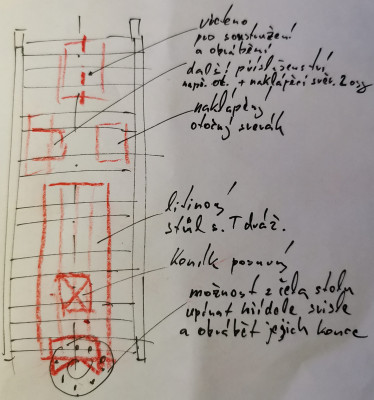 vřeteno
pro soustružení
a obrábění
další příslušenství
např. ot. + naklápěcí svěr. 2 osy
naklápěcí
otočný svěrák
litinový
stůl s. T dráž.
Koník posuvný
možnost z čela stolu
upínat hřídele svisle
a obrábět jejich konce